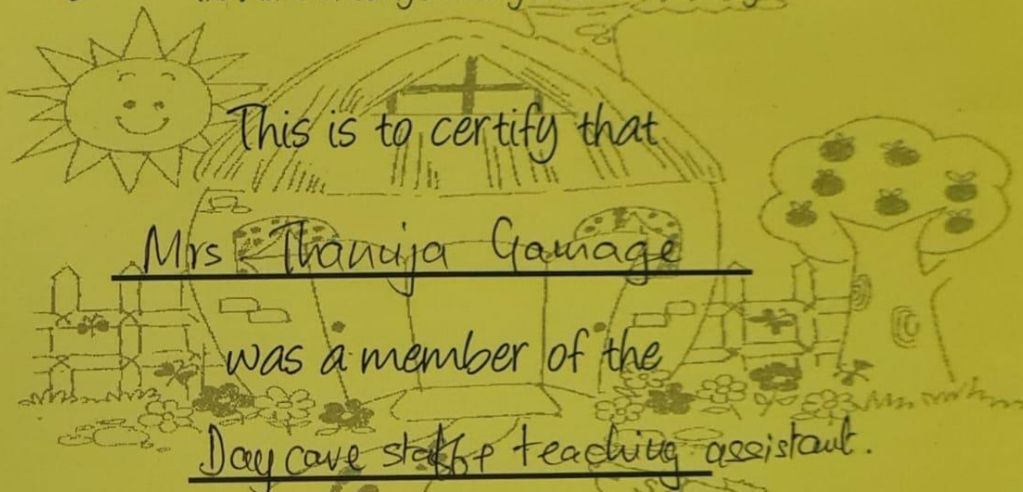 This is to certify that
Mrs Thanuja Gamage
was a member of the
Day care teaching assistant.